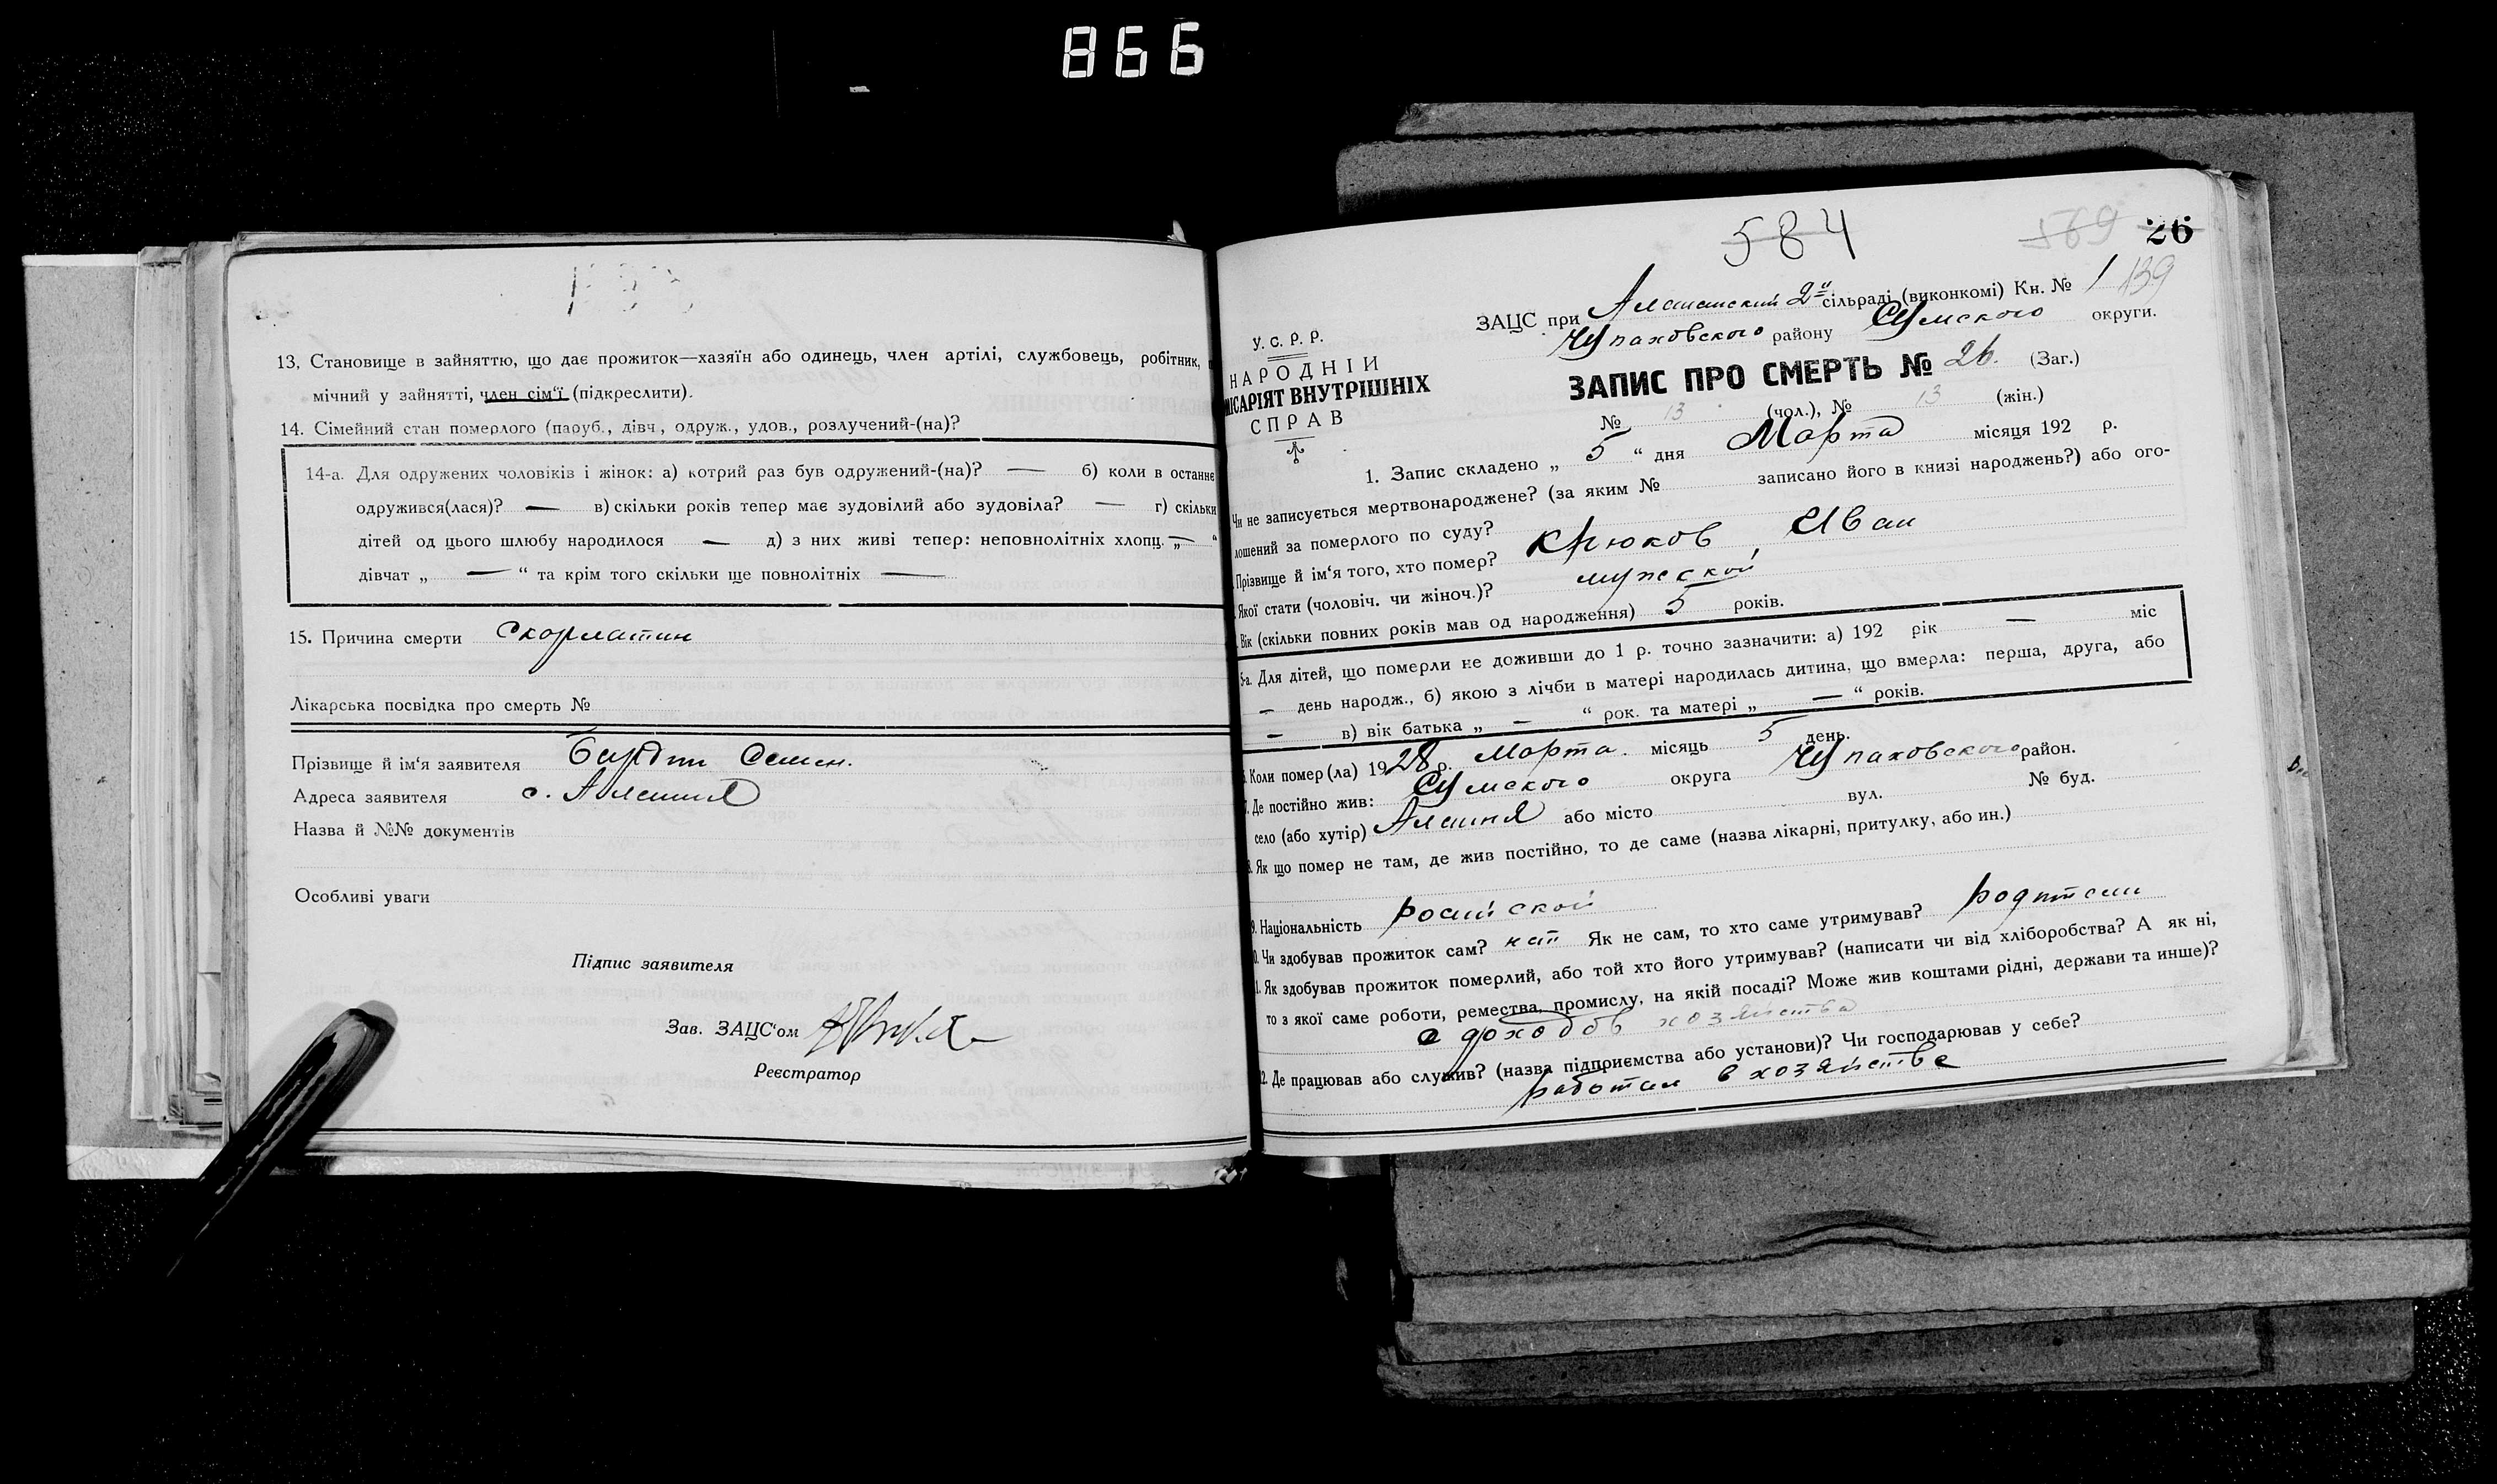 866
13. Становище в зайняттю, що дає прожиток—хазяїн або одинець, член артілі, службовець, робітник,
мічний у зайнятті, член сім'ї (підкреслити).
14. Сімейний стан померлого (паруб., дівч., одруж., удов., розлучений-(на)?
14-а. Для одружених чоловіків і жінок: а) котрий раз був одружений-(на)? — б) коли в останнє
одружився(лася)? — в) скільки років тепер має зудовілий або зудовіла? — г) скільки
дітей од цього шлюбу народилося — д) з них живі тепер: неповнолітніх хлопц. „ — “
дівчат „ — “ та крім того скільки ще повнолітніх —
15. Причина смерти Скорлатин
Лікарська посвідка про смерть №
Прізвище й ім'я заявителя Семен.
Адреса заявителя с. Алешня
Назва й №№ документів
Особливі уваги
Підпис заявителя
Зав. ЗАЦС'ом
Реєстратор
584 569 26
139
У.С.Р.Р.
НАРОДНІЙ
МІСАРІЯТ ВНУТРІШНІХ
СПРАВ
ЗАЦС при Алешанский 2й сільраді (виконкомі) Кн. № 1
Чупаховского району Сумского округи.
ЗАПИС ПРО СМЕРТЬ № 26. (Заг.)
№ 13 (чол.), № 13 (жін.)
1. Запис складено „ 5 “ дня Марта місяця 192 р.
Чи не записується мертвонароджене? (за яким № записано його в книзі народжень?) або ого-
лошений за померлого по суду?
Прізвище й ім'я того, хто помер? Крюков Иван
Якої стати (чоловіч. чи жіноч.)? мужской
Вік (скільки повних років мав од народження) 5 років.
5-а. Для дітей, що померли не доживши до 1 р. точно зазначити: а) 192 рік — міс
— день народж., б) якою з лічби в матері народилась дитина, що вмерла: перша, друга, або
— в) вік батька „ — “ рок. та матері „ — “ років.
Коли помер (ла) 1928 р. Марта. місяць 5 день.
7. Де постійно жив: Сумского округа Чупаховского район.
село (або хутір) Алешня або місто вул. № буд.
8. Як що помер не там, де жив постійно, то де саме (назва лікарні, притулку, або ин.)
9. Національність росийской
0. Чи здобував прожиток сам? нет Як не сам, то хто саме утримував? родители
1. Як здобував прожиток померлий, або той хто його утримував? (написати чи від хліборобства? А як ні,
то з якої саме роботи, ремества, промислу, на якій посаді? Може жив коштами рідні, держави та инше)?
с доходов хозяйства
12. Де працював або служив? (назва підприємства або установи)? Чи господарював у себе?
работал в хозяйстве